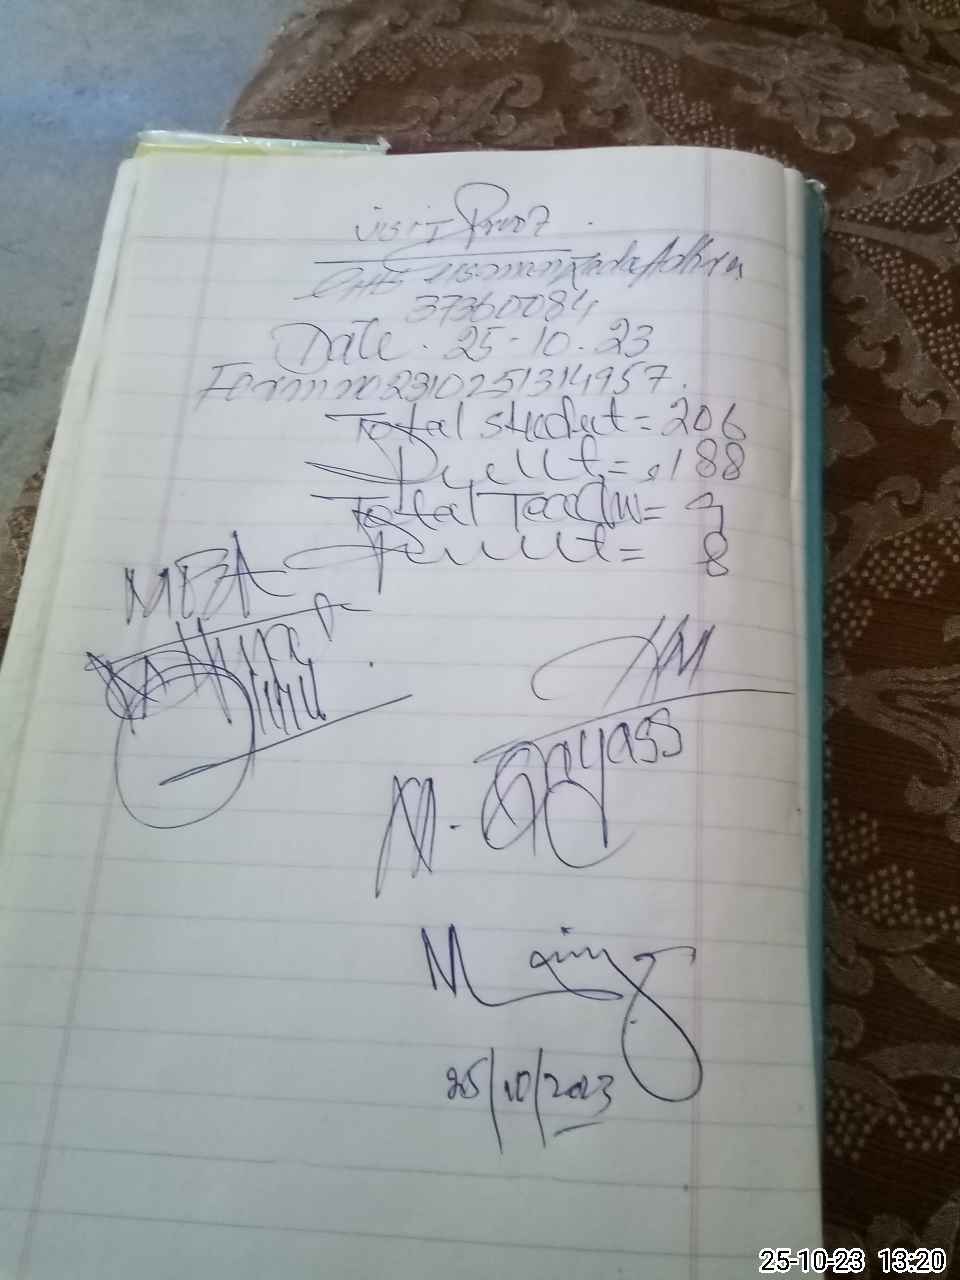 visit Proof
GHS Usman Zada Adhra
37360084
Date. 25-10.23
Form no 2310251314957.
Total student = 206
Present = 188
Total Teacher = 9
Present = 8
MEA
HM
M. Gayass
25/10/2023
25-10-23 13:20